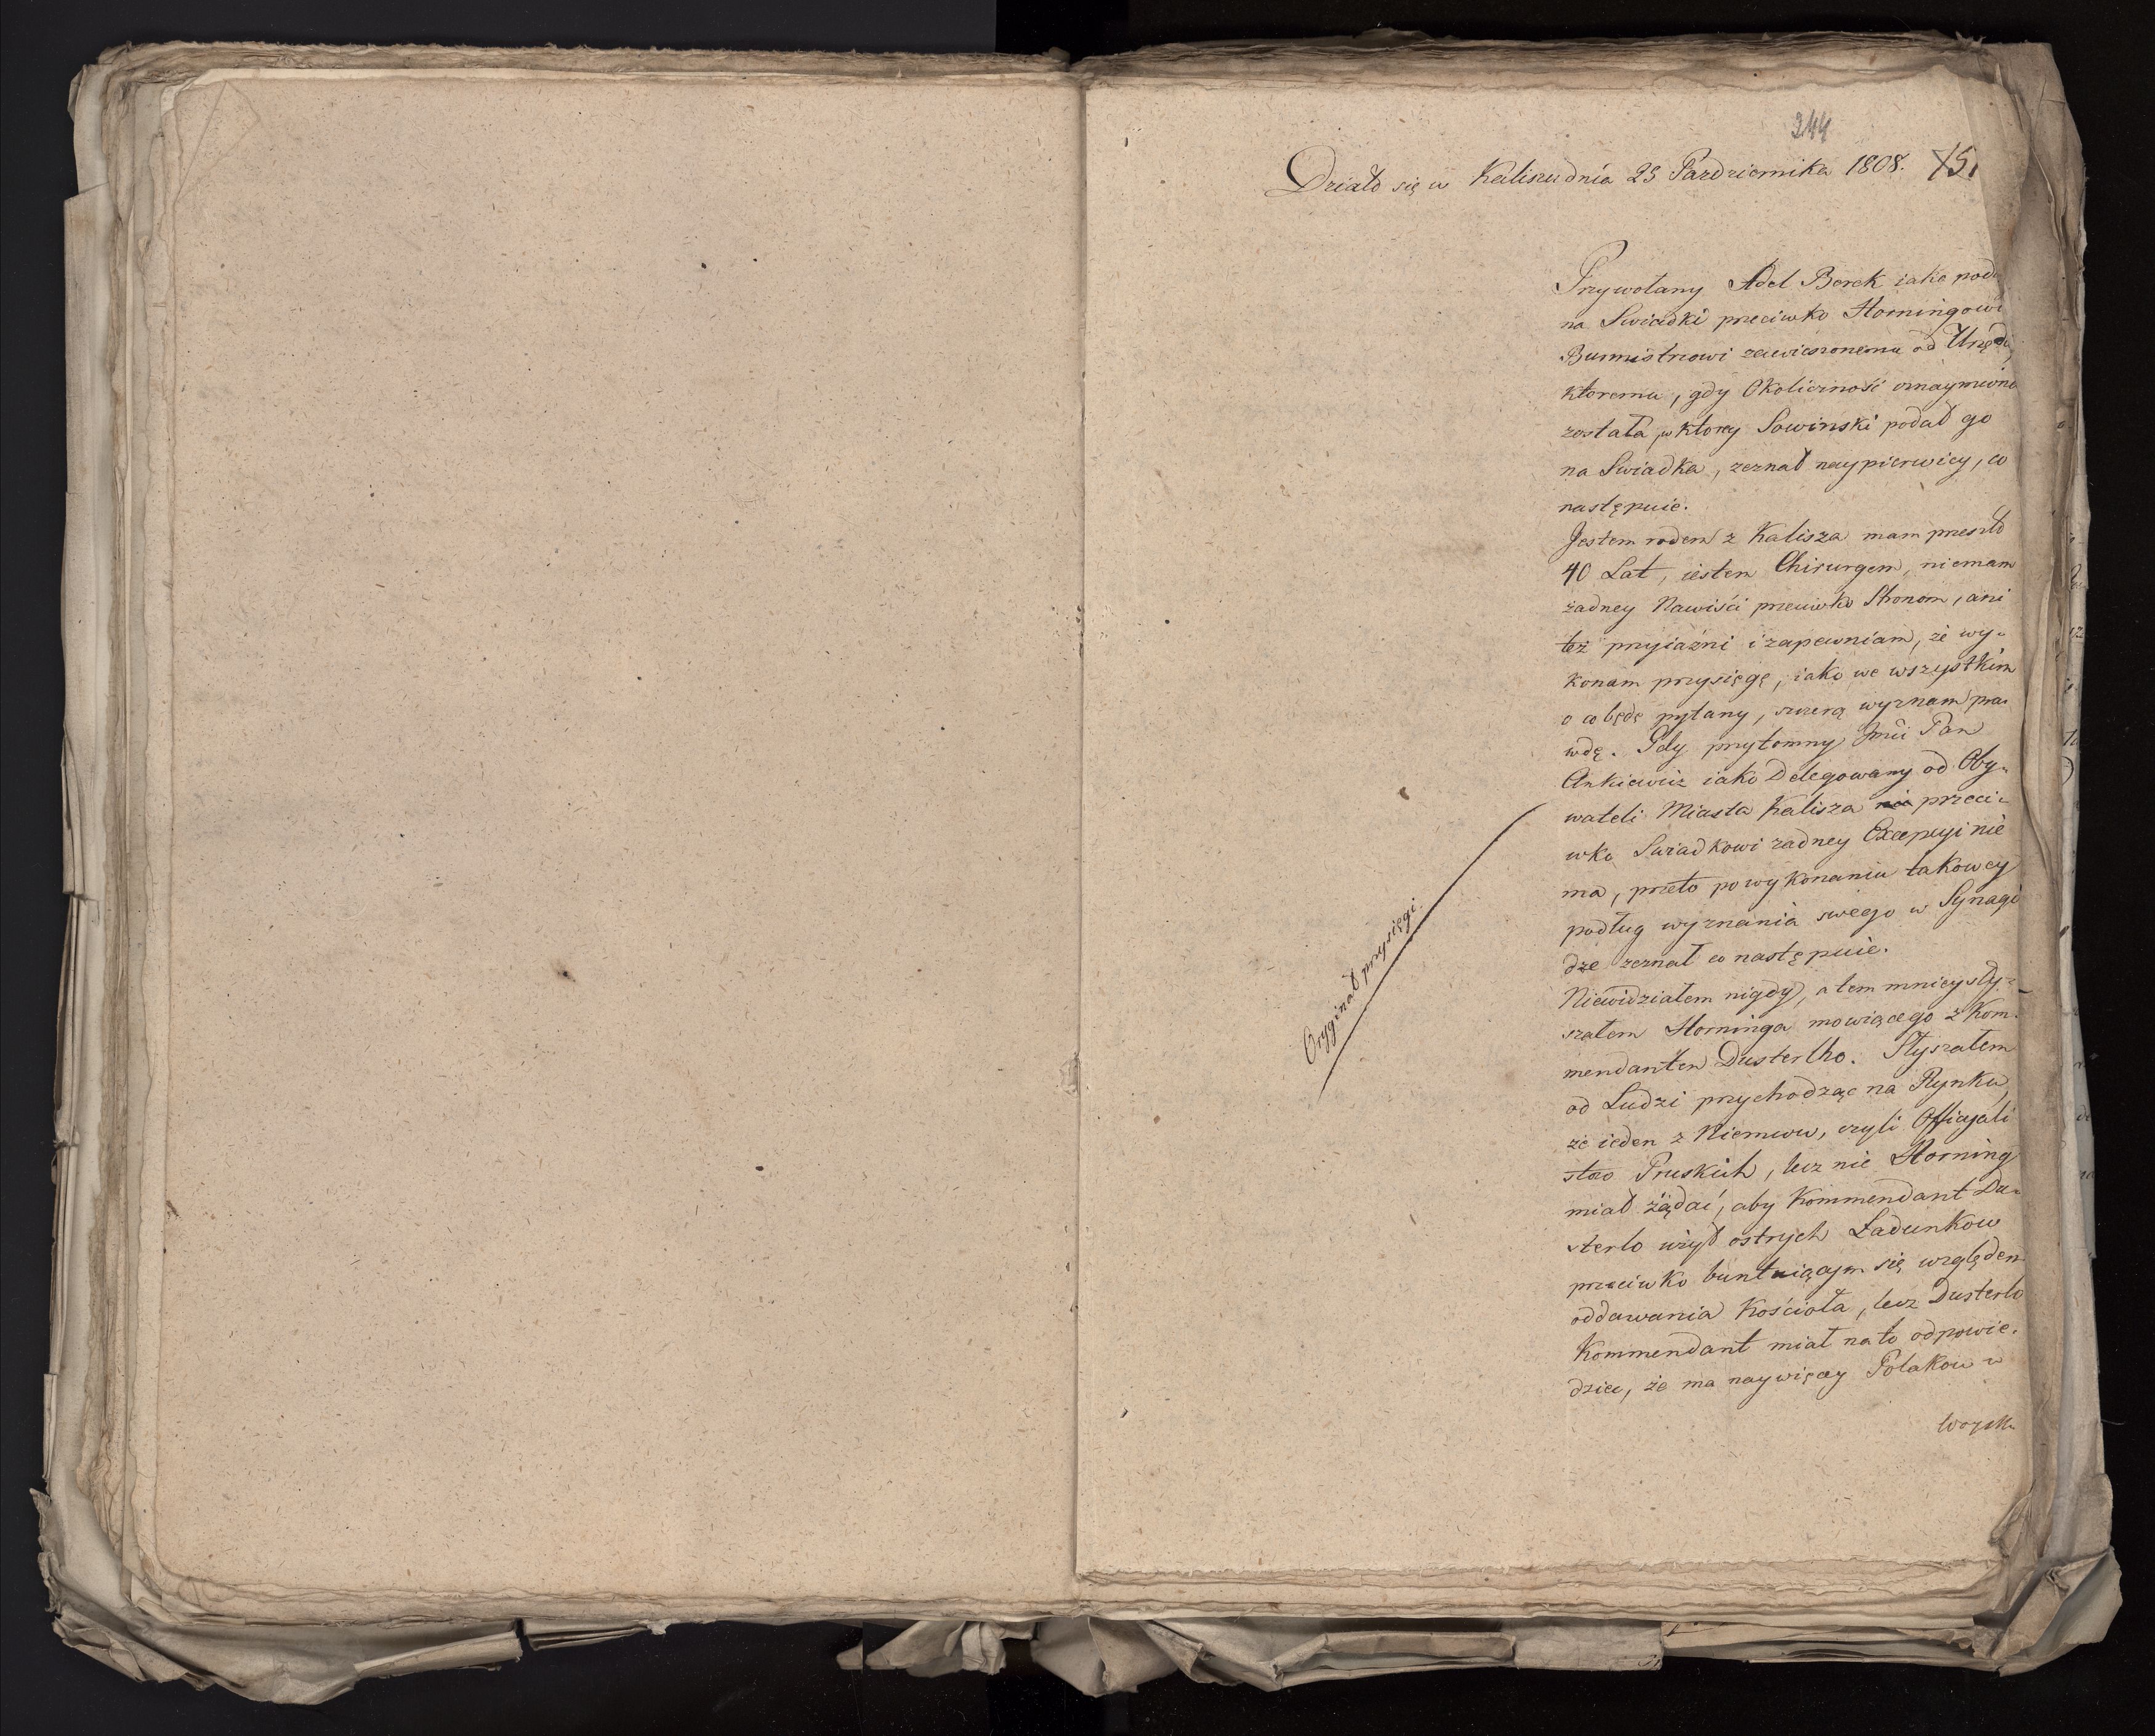 244
Działo się w Kaliszu dnia 23 Pazdziernika 1808. 15,
Przywołany Adel Borek iako poda
na Swiadki przeciwko Horningowi
Burmistrzowi zawieszonemu od Urzędu,
ktoremu, gdy Okoliczność oznaymiona
została, w ktorey Sowinski podał go
na Swiadka, zeznał naypierwiey, co
następuie.
Jestem rodem z Kalisza mam przeszło
40 Lat, iestem Chirurgem, niemam
żadney Nawiści przeciwko Stronom, ani
też przyiaźni i zapewniam, że wy-
konam przysięgę, iako we wszystkim
o co będę pytany, szczerą wyznam pra-
wdę. Gdy przytomny Jmci Pan
Ankiewicz iako Delegowany od Oby-
wateli Miasta Kalisza nie przeci-
wko Swiadkowi żadney Excepcyi nie
ma, przeto po wykonaniu takowey
podług wyznania swego w Synago
dze zeznał co następuie.
Niewidziałem nigdy, a tem mniey sły-
szałem Horninga mowiącego z Kom-
mendantem Dusterlho. Słyszałem
od Ludzi przychodząc na Rynku,
że ieden z Niemcow, czyli Officyali
stow Pruskich, lecz nie Horning
miał żądać, aby Kommendant Du-
sterlo użył ostrych Ładunkow
przeciwko buntuiącym się względem
oddawania Kościoła, lecz Dusterlo
Kommendant miał na to odpowie-
dziec, że ma naywięcey Polakow w
Woysku
Oryginał przysięgi.